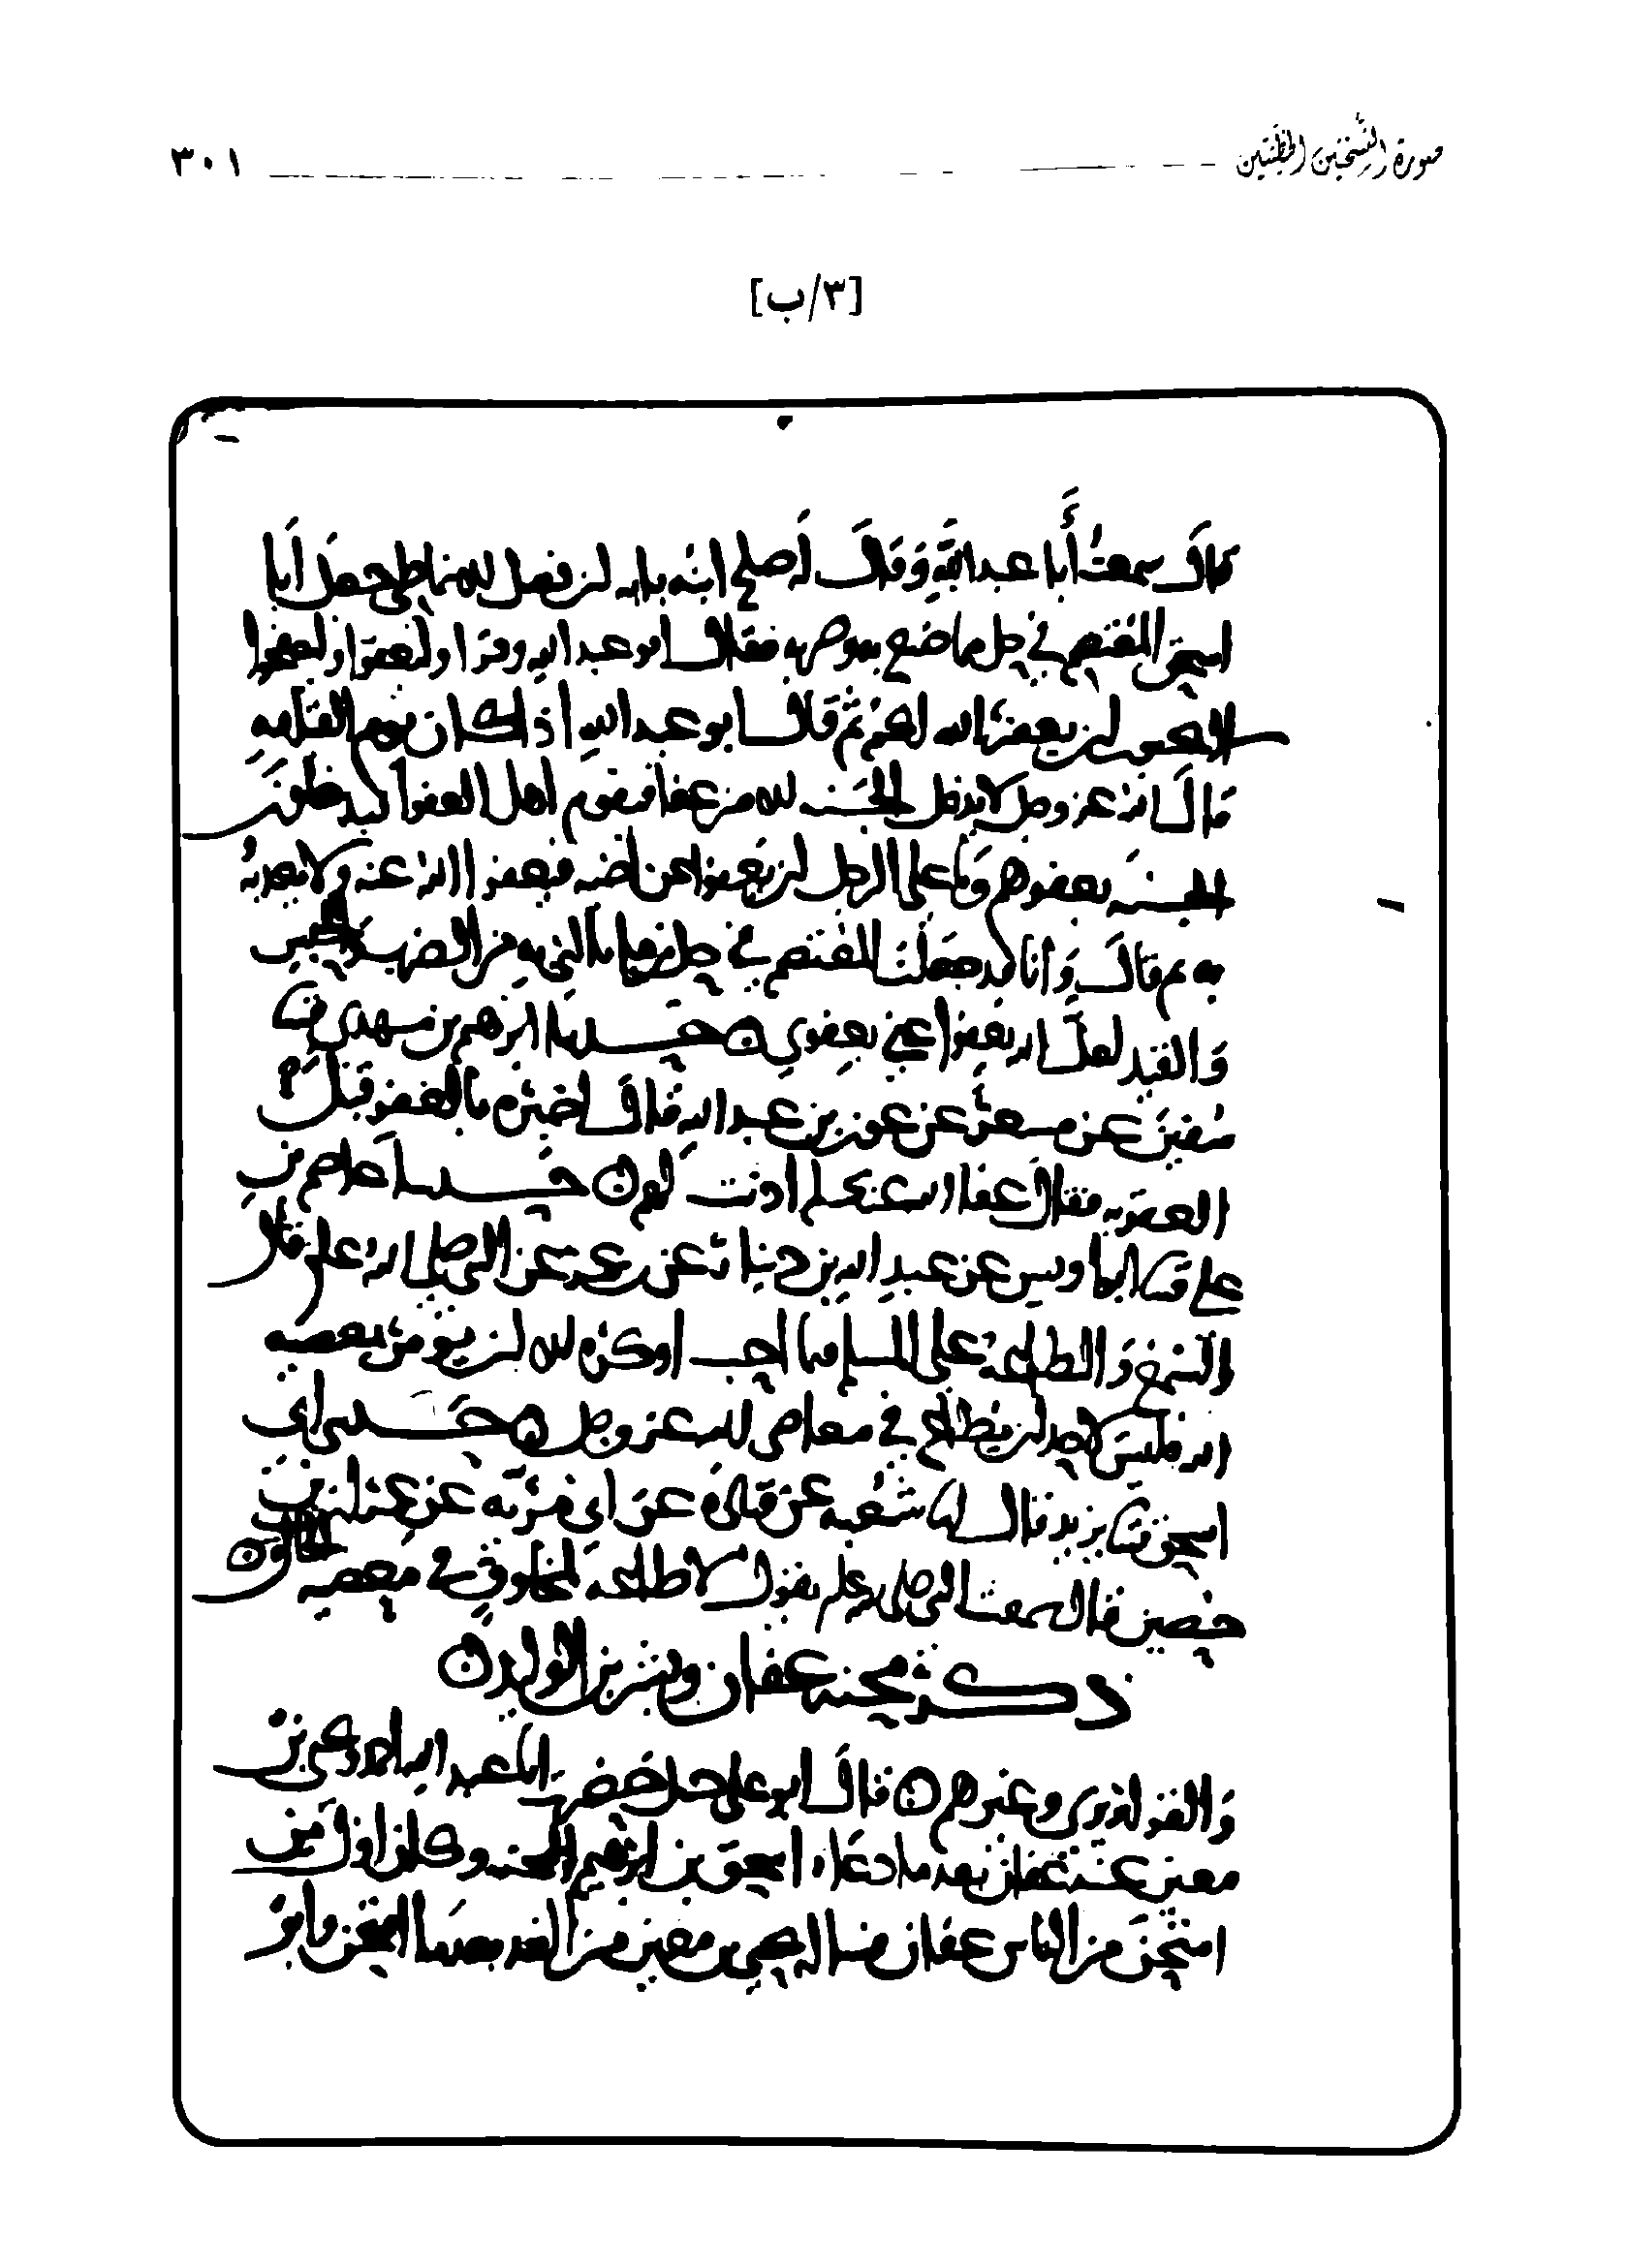 صورة النسختين الخطيتين ٣٠١
[٣/ب]
قال سمعت أبا عبد الله وقال له صلح ابنه يا ابه لن فضل جعل أبا
اسحق المعتصم في حل مما ضع به فقال ابو عبد الله وقرا وليعفوا وليصفحوا
الا تحبون ان يغفر الله لكم ثم قال ابو عبد الله اذا كان يوم القيامة
قال الله عز وجل لا يدخل الجنة من عفا فيقوم اهل العفو فيدخلون
الجنة بعفوهم وما على الرجل ان يعفو عن اخيه فيعفوا الله عنه ولا يعذبه
به ثم قال وانا قد جعلت المعتصم في حل من الضرب والحبس
والقيد لعل الله يعفوا عني بعفوي ن حدثنا ابرهيم بن مهدي قثنا
سفين عن مسعر عن عون بن عبد الله قال اخبره بالعفو قبل
العقوبه فقال عفا الله عنك لم اذنت لهم ن حدثنا عاصم بن
علي قثنا ابو اويس عن عبد الله بن دينار عن ابن عمر عن النبي صلى الله عليه قال
السمع والطاعة على المسلم فيما احب او كره ان لم يؤمر بمعصيه
الله فليس لاحد ان يطاع في معاصي الله عز وجل ن حدثني ابي
اسحق قثنا يزيد قال انا شعبه عن قتاده عن ابي مرايه عن عمران بن
حصين قال سمعت النبي صلى الله عليه وسلم يقول لا طاعة لمخلوق في معصيه الله ن
ذكر محنه عفان وبشر بن الوليد ن
والقواريري وغيرهم ن قال ابو علي حنبل حضرت ابا عبد الله احمد ويحيى بن
معين عند عفان بعد ما دعاه اسحق بن ابرهيم للمحنه وكان اول من
امتحن من الناس عفان فساله يحيى بن معين من الغد بعدما امتحن وابو